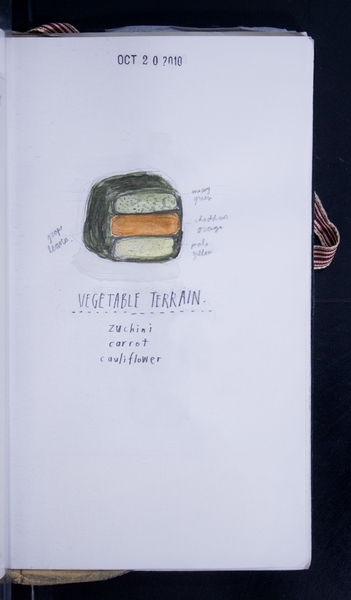 OCT 20 2010
mossy
green
cheddar
orange
pale
yellow
grape
leaves
VEGETABLE TERRAIN.
zuchini
carrot
cauliflower